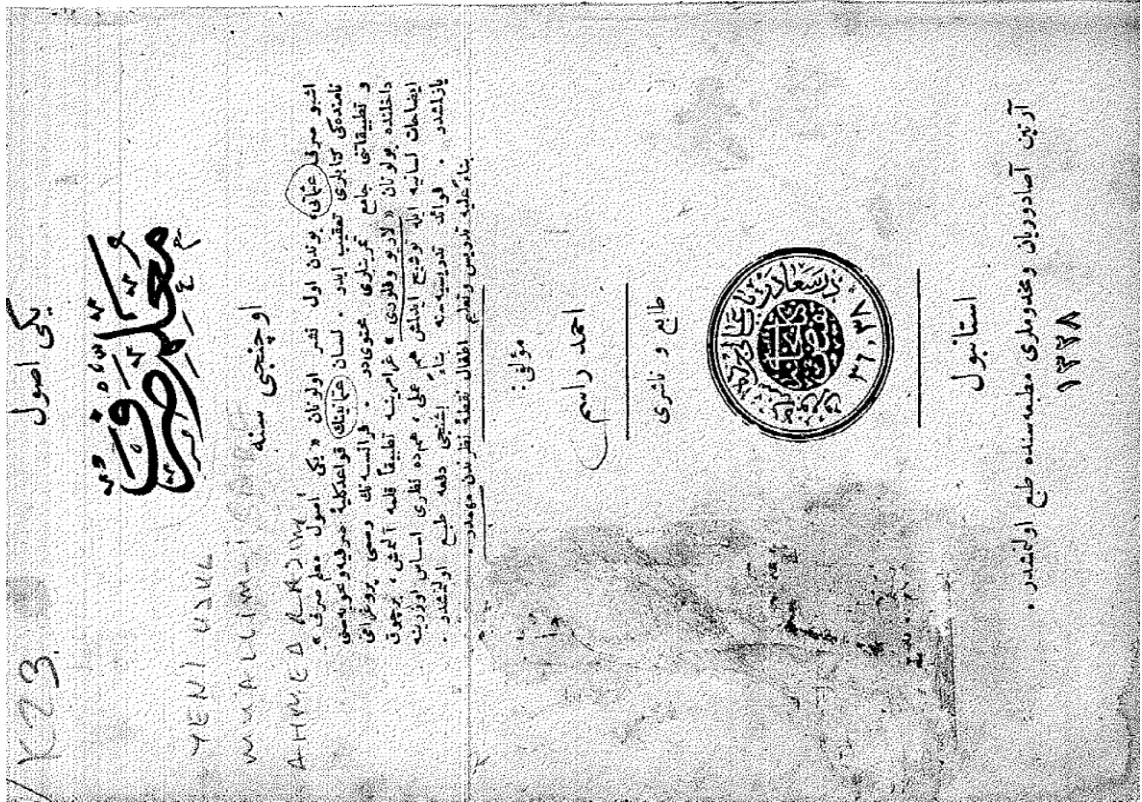 K23
یکی اصول
معلم صرف
YENİ USUL
MUALLİM-İ
AHMED RASİM
اوچنجی سنه
اشبو صرف عثمانی، بوندن اول نشر اولونان « یکی اصول معلم صرف »
نامنده‌کی کتابلری تعقیب ایدر . لسان عثمانینك قواعد کلیهٔ صرفیه و نحویه‌سنی
و تطبیقاتی جامع تمرینلری محتویدر . فرانسه‌نك رسمی پروغرامی
داخلنده بولونان « لاریو وفلوری » غرامرینه تطبیقاً قلمه آلنمش ، برچوق
ایضاحات لسانیه ایله توضیح ایدلمش هم عملی ، هم‌ده نظری اساس اوزرینه
یازلمشدر . فوائد تدریسیه‌سنه بناءً بشنجی دفعه طبع اولنمشدر .
بناءً علیه تدریس وتعلیم اطفال نقطهٔ نظرندن مهمدر .
مؤلفی :
احمد راسم
طابع و ناشری
استانبول
آرتین آصادوریان ومخدوملری مطبعه‌سنده طبع اولنمشدر .
١٣٣٨